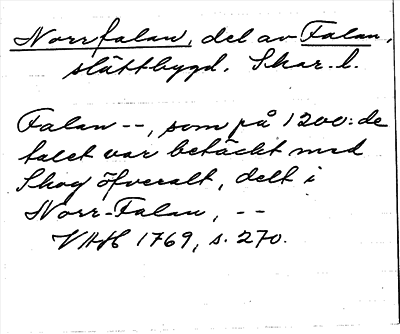 Norrfalan, del av Falan,
slättbygd. Skar. l.
Falan --, som på 1200:de
talet var betäckt med
Skog öfveralt, delt i
Norr-Falan, --
VAH 1769, s. 270.